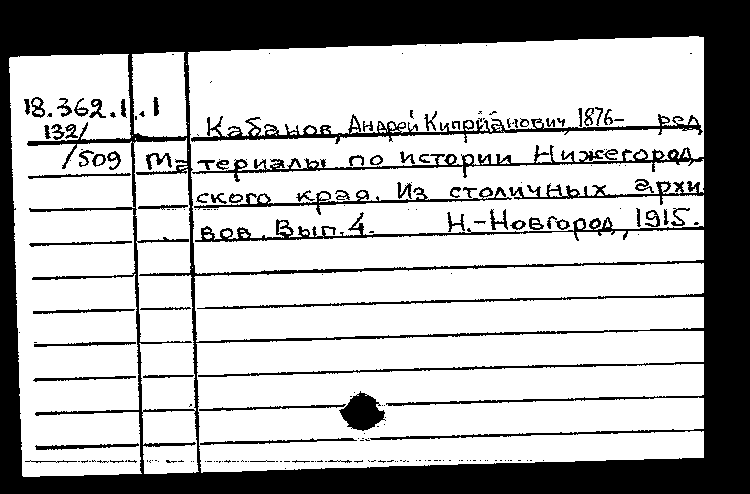 18.362.1.1
132/ Кабанов, Андрей Киприанович, 1876- ред
/509 Материалы по истории Нижегород-
ского края. Из столичных архи
вов. Вып. 4. Н.-Новгород, 1915.